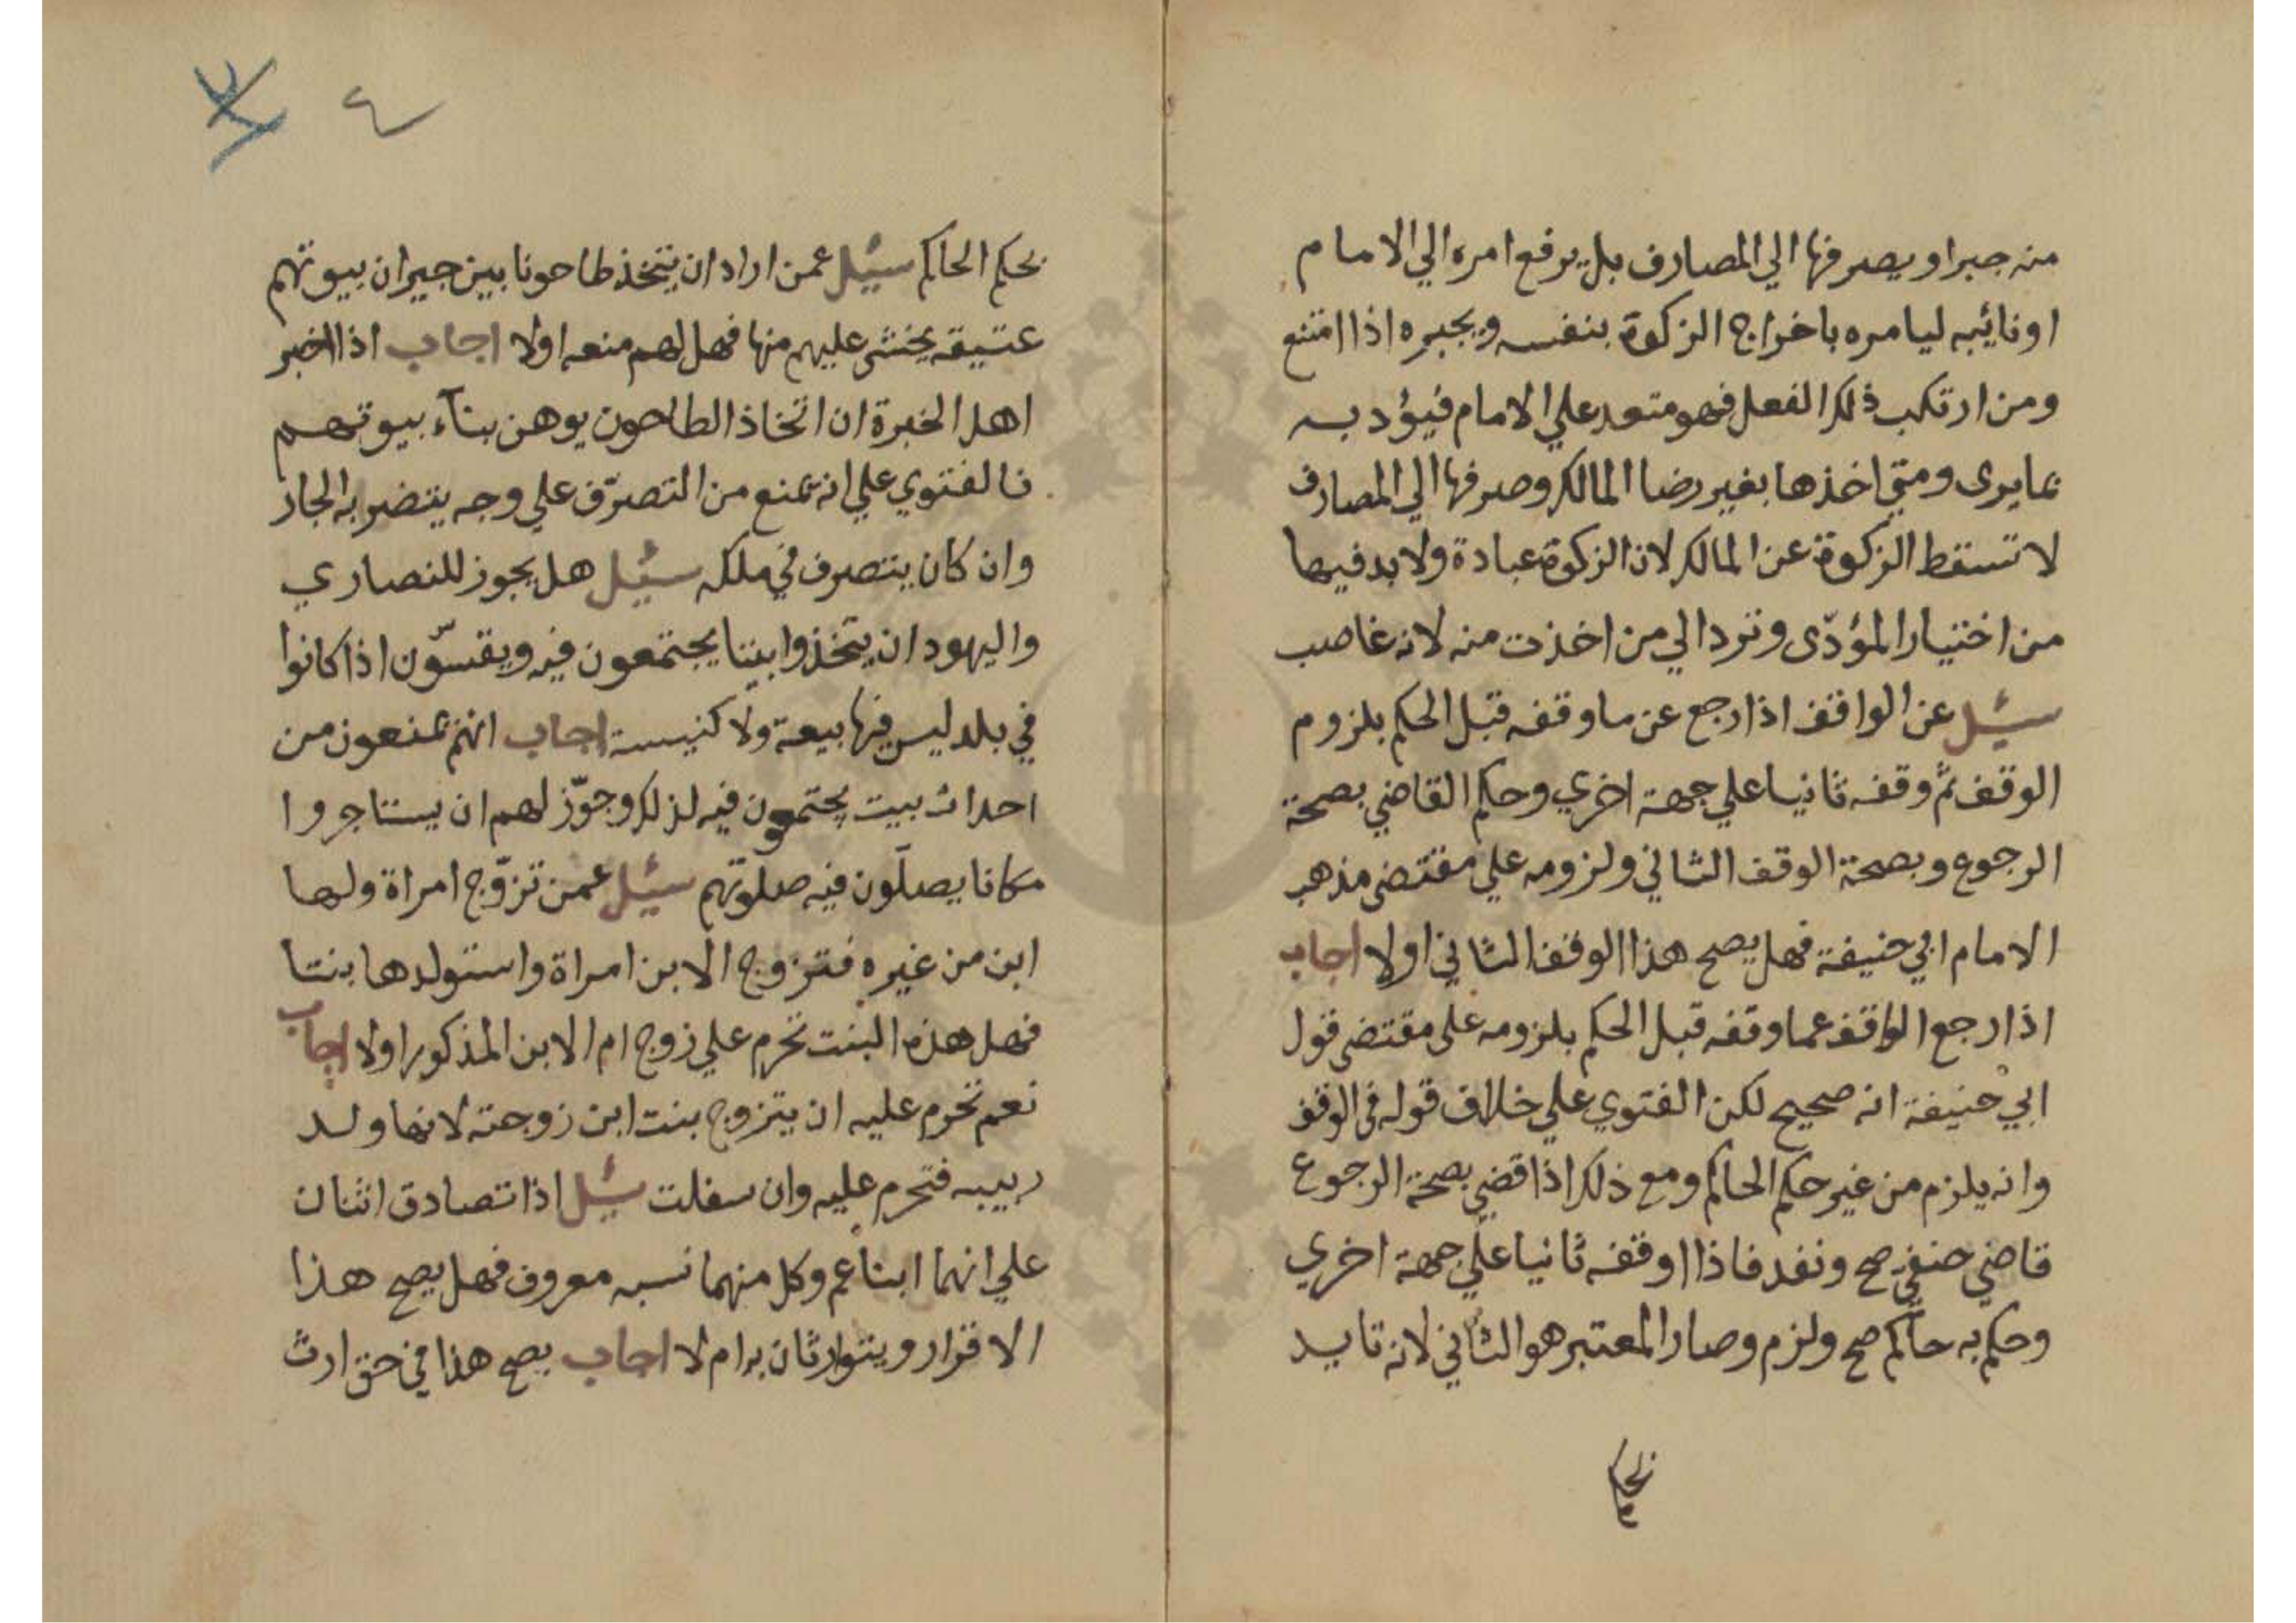 منه جبرا ويصرفها الي المصارف بل يرفع امره الي الامام
او نائبه ليامره باخراج الزكوة بنفسه ويجبره اذا امتنع
ومن ارتكب ذلك الفعل فهو متعد علي الامام فيؤدبه
بما يرى ومتي اخذها بغير رضا المالك وصرفها الي المصارف
لا تسقط الزكوة عن المالك لان الزكوة عبادة ولا بد فيها
من اختيار المؤدّى وترد الي من اخذت منه لانه غاصب
سئل عن الواقف اذا رجع عن ما وقفه قبل الحكم بلزوم
الوقف ثم وقفه ثانيا علي جهة اخري وحكم القاضي بصحة
الرجوع وبصحة الوقف الثاني ولزومه علي مقتضى مذهب
الامام ابي حنيفة فهل يصح هذا الوقف الثاني اولا اجاب
اذا رجع الواقف عما وقفه قبل الحكم بلزومه على مقتضى قول
ابي حنيفة انه صحيح لكن الفتوي علي خلاف قوله في الوقف
وانه يلزم من غير حكم الحاكم ومع ذلك اذا قضي بصحة الرجوع
قاضي حنفي صح ونفد فاذا اوقفه ثانيا علي جهة اخري
وحكم به حاكم صح ولزم وصار المعتبر هو الثاني لانه تايد
بحكم
٤
بحكم الحاكم سئل عمن اراد ان يتخذ طاحونا بين جيران بيوتهم
عتيقه يخشى عليهم منها فهل لهم منعه اولا اجاب اذا اخبر
اهل الخبرة ان اتخاذ الطاحون يوهن بنآء بيوتهم
فالفتوي علي انه يمنع من التصرّف علي وجه يتضرر به الجار
وان كان يتصرف في ملكه سئل هل يجوز للنصاري
واليهود ان يتخذوا بيتا يجتمعون فيه ويقسّون اذا كانوا
في بلد ليس فيها بيعة ولا كنيسة اجاب انهم يمنعون من
احداث بيت يجتمعون فيه لذلك وجوّز لهم ان يستاجروا
مكانا يصلّون فيه صلوتهم سئل عمن تزوّج امراة ولها
ابن من غيره فتزوج الابن امراة واستولدها بنتا
فهل هذه البنت تحرم علي زوج ام الابن المذكور اولا اجاب
نعم تحرم عليه ان يتزوج بنت ابن زوجته لانها ولد
ربيبه فتحرم عليه وان سفلت سئل اذا تصادق اثنان
علي انهما ابنا عم وكل منهما نسبه معروف فهل يصح هذا
الاقرار ويتوارثان به ام لا اجاب يصح هذا في حق ارث